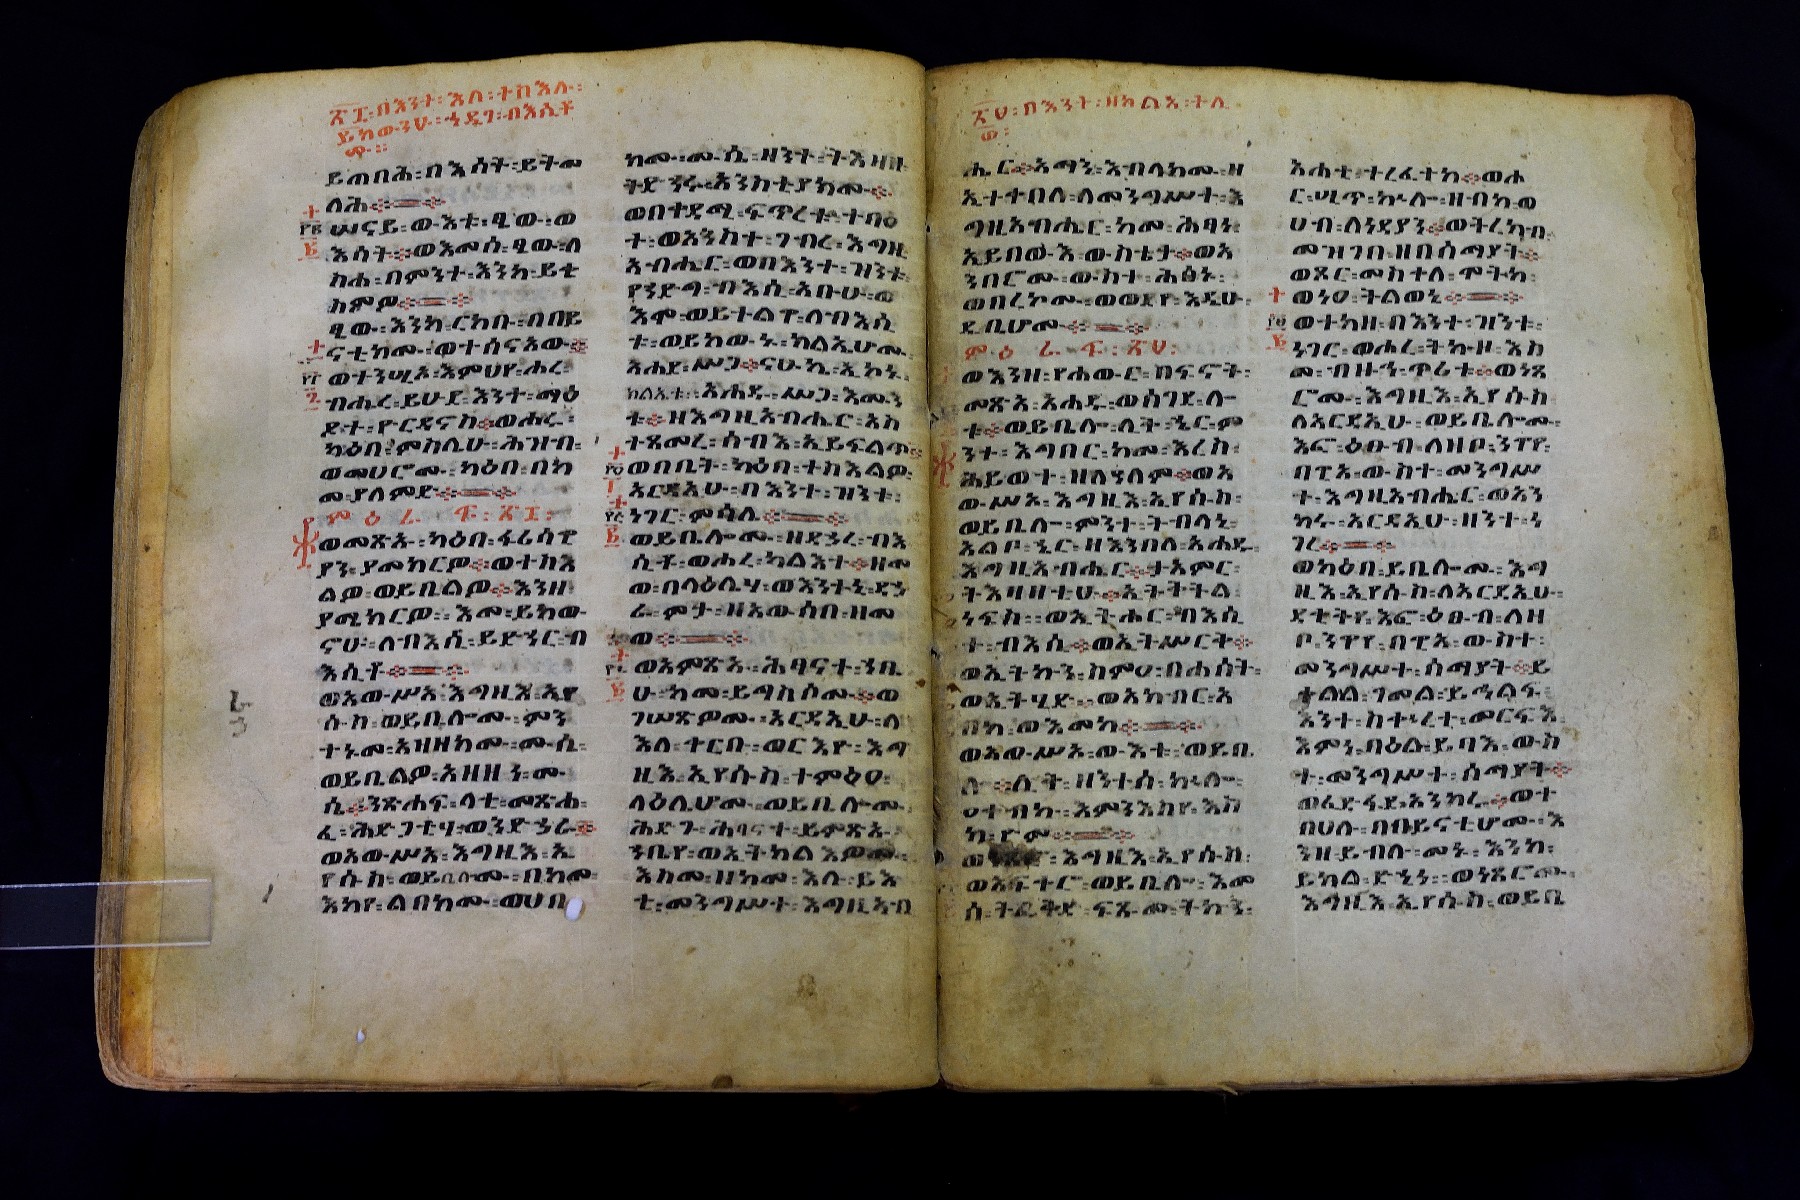 በእንተ፡ እለ፡ ተስእሉ፡
ይከውንሁ፡ ኀዲገ፡ ብእሲት
ይጠበሕ፡ በእሳት፡ ይትመ
ላሕ፨
ሠናይ፡ ውእቱ፡ ፄው፡ ወ
እሳት፨ ወእመሰ፡ ፄው፡ ለ
ስሐ፡ በምንተ፡ እንከ፡ ይቄ
ስምዎ፨
ፄው፡ እንከ፡ ርከቡ፡ በበይ
ናቲክሙ፡ ወተሰናአው፨
ወተንሢኦ፡ እምህየ፡ ሐረ፡
ብሔረ፡ ይሁዳ፡ እንተ፡ ማዕ
ዶተ፡ ዮርዳኖስ፨ ወሐረ፡
ካዕበ፡ ምስሌሁ፡ ሕዝብ፡
ወመሀሮሙ፡ ካዕበ፡ በከ
መ፡ ያለምድ፨
ምዕራፍ፡
ወመጽኡ፡ ካዕበ፡ ፋሪሳዊ
ያን፡ ያመክርዎ፨ ወተስእ
ልዎ፡ ወይቤልዎ፨ እንዘ፡
ያሜክርዎ፡ እመ፡ ይከው
ናሁ፡ ለብእሲ፡ ይድኀር፡ ብ
እሲቶ፨
ወአውሥአ፡ እግዚእ፡ ኢየ
ሱስ፡ ወይቤሎሙ፡ ምን
ተኑመ፡ አዘዘክሙ፡ ሙሴ፡
ወይቤልዎ፡ አዘዘነ፡ ሙ
ሴ፨ ንጽሐፍ፡ ላቲ፡ መጽሐ
ፈ፡ ሕድጋቲሃ፡ ወንድኀራ፨
ወአውሥአ፡ እግዚእ፡ ኢ
የሱስ፡ ወይቤሎሙ፡ በከመ፡
እከየ፡ ልበክሙ፡ ወሀበ
ክሙ፡ ሙሴ፡ ዘንተ፡ ትእዛዘ፡
ትድኀሩ፡ አንስቲያክሙ፨
ወበቀዳሚ፡ ፍጥረቱ፡ ተባዕ
ተ፡ ወአንስተ፡ ገብረ፡ እግዚ
አብሔር፡ ወበእንተ፡ ዝንቱ፡
የኀድግ፡ ብእሲ፡ አቡሁ፡ ወ
እሞ፡ ወይተልዋ፡ ለብእሲ
ቱ፡ ወይከውኑ፡ ክልኤሆሙ፡
አሐደ፡ ሥጋ፨ ናሁኬ፡ ኢኮኑ፡
ክልኤተ፡ አሐዱ፡ ሥጋ፡ እሙን
ቱ፨ ዘእግዚአብሔር፡ አስ
ተጻመረ፡ ሰብእ፡ ኢይፍልጥ፨
ወበቤት፡ ካዕበ፡ ተስእልዎ፡
አርዳኢሁ፡ በእንተ፡ ዝንቱ፡
ነገር፡ ምሳሌ፨
ወይቤሎሙ፡ ዘደኀረ፡ ብእ
ሲቶ፡ ወሐረ፡ ካልእተ፨ ዘመ
ወ፡ በላዕሌሃ፡ ወአንተኒ፡ ደኀ
ራ፡ ምታ፡ ዘአውሰበ፡ ዘመ
ወ፨
ወአምጽኡ፡ ሕፃናተ፡ ኀቤ
ሁ፡ ከመ፡ ይግስሶሙ፨ ወ
ገሠጽዎሙ፡ አርዳኢሁ፡ ለ
እለ፡ ቀርቡ፡ ወርእዮ፡ እግ
ዚእ፡ ኢየሱስ፡ ተምዕዐ፡
ላዕሌሆሙ፡ ወይቤሎሙ፡
ሕድጉ፡ ሕፃናተ፡ ይምጽኡ፡
ኀቤየ፡ ወኢትክልእዎሙ፡
እስመ፡ ዘከመ፡ እሉ፡ ይእ
ቲ፡ መንግሥተ፡ እግዚአብ
በእንተ፡ ዘከልአ፡ ተለ
ዎ፡
ሔር፨ አማን፡ እብለክሙ፡ ዘ
ኢተቀበለ፡ ለመንግሥተ፡ እ
ግዚአብሔር፡ ከመ፡ ሕፃን፡
ኢይበውእ፡ ውስቴታ፨ ወአ
ንበሮሙ፡ ውስተ፡ ሕፅኑ፡
ወባረኮሙ፡ ወወደየ፡ እዴሁ፡
ዲቤሆሙ፨
ምዕራፍ፡
ወእንዘ፡ የሐውር፡ በፍኖት፡
መጽአ፡ አሐዱ፡ ወሰገደ፡ ሎ
ቱ፨ ወይቤሎ፡ ሊቅ፡ ኄር፡ ም
ንተ፡ እግበር፡ ከመ፡ እረስ፡
ሕይወተ፡ ዘለዓለም፨ ወአ
ውሥአ፡ እግዚእ፡ ኢየሱስ፡
ወይቤሎ፡ ምንተ፡ ትብለኒ፡
አልቦ፡ ኄር፡ ዘእንበለ፡ አሐዱ፡
እግዚአብሔር፨ ታአምር፡
ትእዛዛቲሁ፨ ኢትቅትል፡
ነፍስ፡ ወኢትሑር፡ ብእሲ
ተ፡ ብእሲ፨ ወኢትሥርቅ፨
ወኢትኩን፡ ስምዐ፡ በሐሰት፡
ወኢትሂድ፡ ወአክብር፡ አ
ባከ፡ ወእመከ፨
ወአውሥአ፡ ውእቱ፡ ወይቤ
ሎ፨ ሊቅ፡ ዘንተሰ፡ ኵሎ፡
ዐቀብኩ፡ እምንእስየ፡ እስ
ከ፡ ዮም፨
ወነጸሮ፡ እግዚእ፡ ኢየሱስ፡
ወአፍቀሮ፡ ወይቤሎ፡ እመ
ሰ፡ ትፈቅድ፡ ፍጹመ፡ ትኩን፡
አሐቲ፡ ተረፈትከ፨ ወሑ
ር፡ ሢጥ፡ ኵሎ፡ ዘብከ፡ ወ
ሀብ፡ ለነዳያን፨ ወትረክብ፡
መዝገበ፡ ዘበሰማያት፨
ወጹር፡ መስቀለ፡ ሞትከ፡
ወነዐ፡ ትልወኒ፨
ወተከዘ፡ በእንተ፡ ዝንቱ፡
ነገር፡ ወሐረ፡ ትኩዘ፡ እስ
መ፡ ብዙኀ፡ ጥሪቱ፨ ወነጸ
ሮሙ፡ እግዚእ፡ ኢየሱስ፡
ለአርዳኢሁ፡ ወይቤሎሙ፡
እፎ፡ ዕፁብ፡ ለዘቦ፡ ንዋየ፡
በዊአ፡ ውስተ፡ መንግሥ
ተ፡ እግዚአብሔር፡ ወአን
ከሩ፡ አርዳኢሁ፡ ዘንተ፡ ነ
ገረ፨
ወካዕበ፡ ይቤሎሙ፡ እግ
ዚእ፡ ኢየሱስ፡ ለአርዳኢሁ፡
ደቂቅየ፡ እፎ፡ ዕፁብ፡ ለዘ
ቦ፡ ንዋየ፡ በዊአ፡ ውስተ፡
መንግሥተ፡ ሰማያት፨ ይ
ቀልል፡ ገመል፡ ይኅልፍ፡
እንተ፡ ስቍረተ፡ መርፍእ፡
እምነ፡ በዕል፡ ይባእ፡ ውስ
ተ፡ መንግሥተ፡ ሰማያት፨
ወፈድፋደ፡ አንከሩ፨ ወተ
በሀሉ፡ በበይናቲሆሙ፡ እ
ንዘ፡ ይብሉ፡ መኑ፡ እንከ፡
ይክል፡ ድኂነ፡ ወነጸሮሙ፡
እግዚእ፡ ኢየሱስ፡ ወይቤ